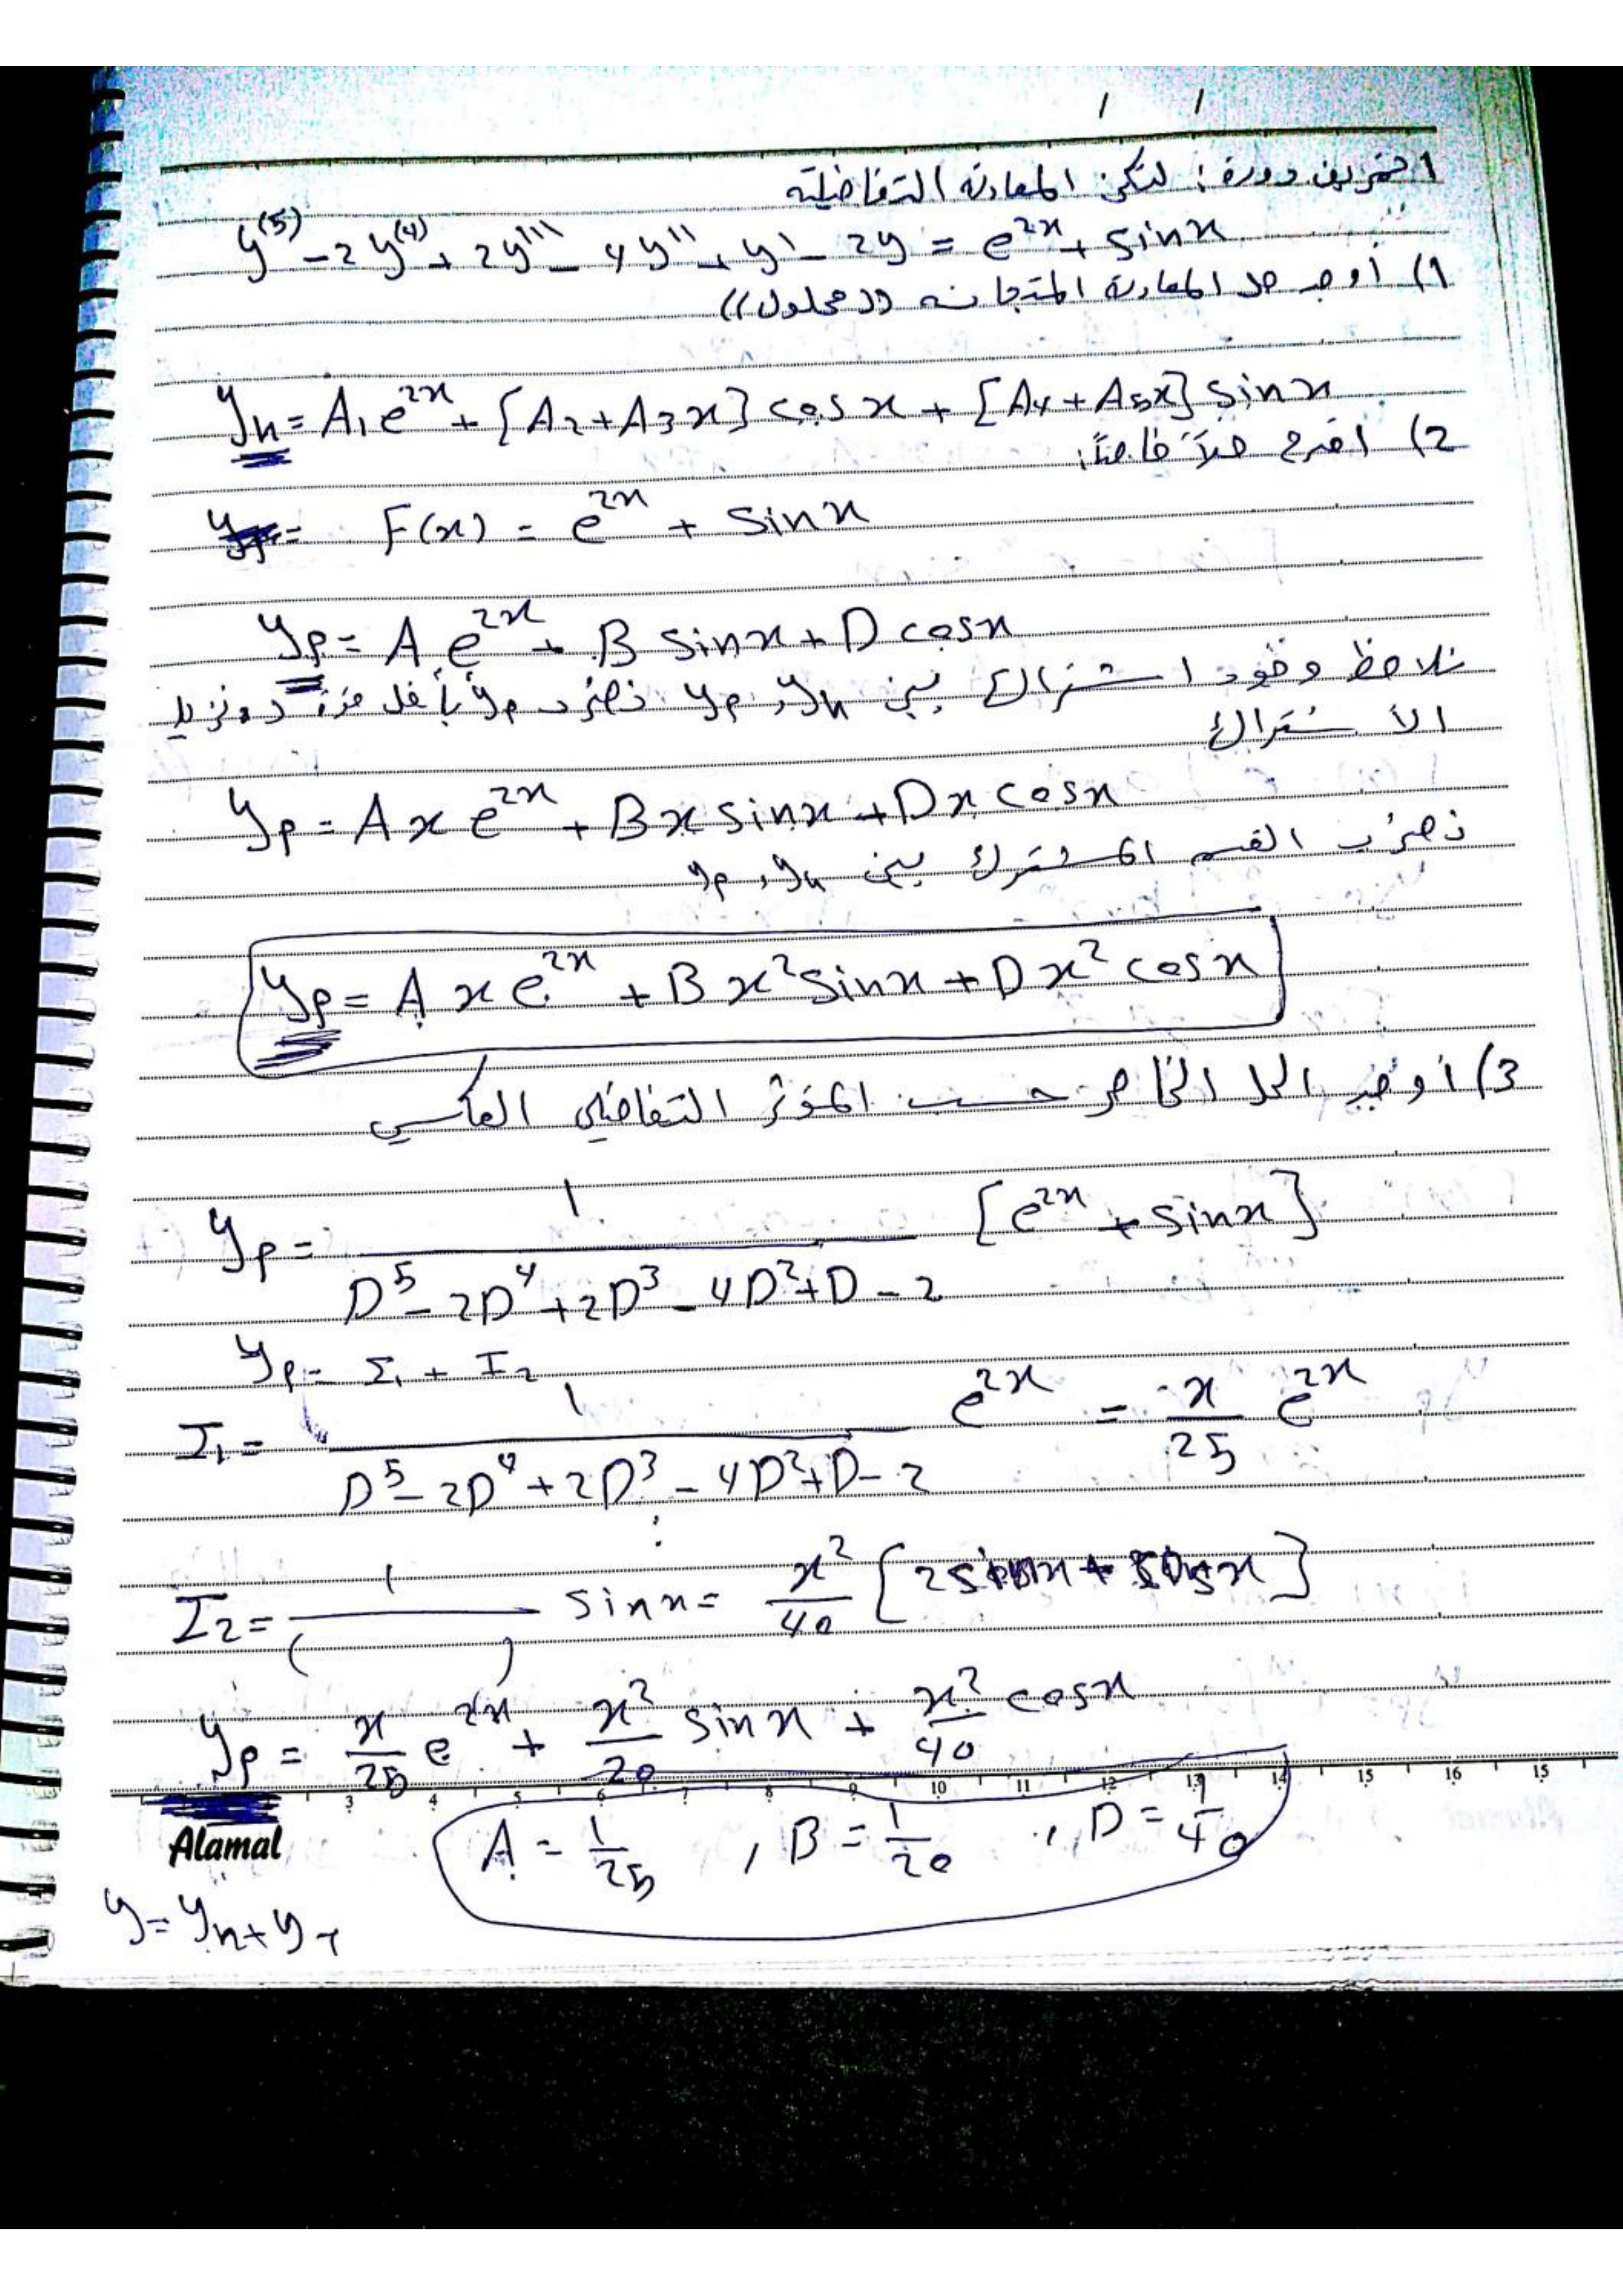 / /
التمرين دورة: لتكن المعادلة التفاضلية
y⁽⁵⁾ - 2y⁽⁴⁾ + 2y''' - 4y'' + y' - 2y = e^{2x} + sin x
1) أوجد حل المعادلة المتجانسة ((محلول))
y_h = A₁e^{2x} + [A₂ + A₃x] cos x + [A₄ + A₅x] sin x
2) اقترح حلاً خاصاً:
F(x) = e^{2x} + sin x
y_p = A e^{2x} + B sin x + D cos x
نلاحظ وجود اشتراك بين y_h و y_p نضرب y_p بـ x
الاشتراك
y_p = A x e^{2x} + B x sin x + D x cos x
نضرب القسم المشترك بين y_h و y_p
y_p = A x e^{2x} + B x² sin x + D x² cos x
3) أوجد الحل الخاص حسب المؤثر التفاضلي العكسي
y_p = 1 / (D⁵ - 2D⁴ + 2D³ - 4D² + D - 2) [e^{2x} + sin x]
y_p = I₁ + I₂
I₁ = 1 / (D⁵ - 2D⁴ + 2D³ - 4D² + D - 2) e^{2x} = x/25 e^{2x}
I₂ = 1/( ) sin x = x²/40 [2sin x + cos x]
y_p = x/25 e^{2x} + x²/20 sin x + x²/40 cos x
3 4 5 6 7 8 9 10 11 12 13 14 15 16 15
Alamal
A = 1/25 , B = 1/20 , D = 1/40
y = y_h + y_p